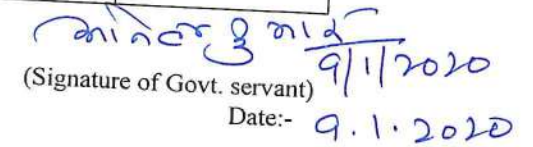 9/1/2020
(Signature of Govt. servant)
Date:- 9.1.2020